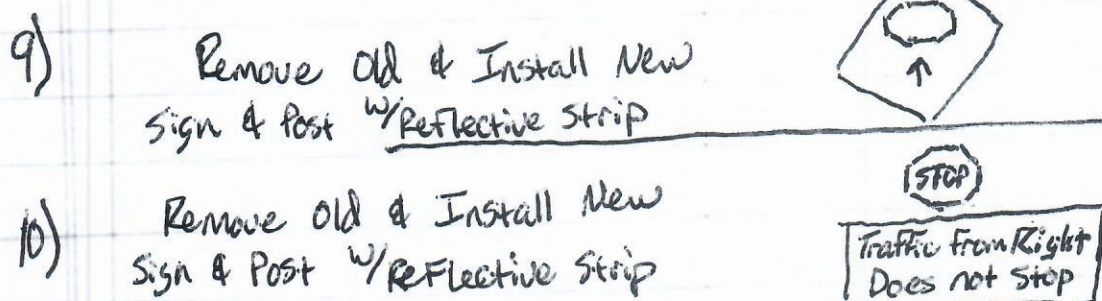 9) Remove Old & Install New
Sign & Post W/Reflective Strip
10) Remove Old & Install New
Sign & Post W/Reflective Strip
STOP
Traffic From Right
Does not Stop